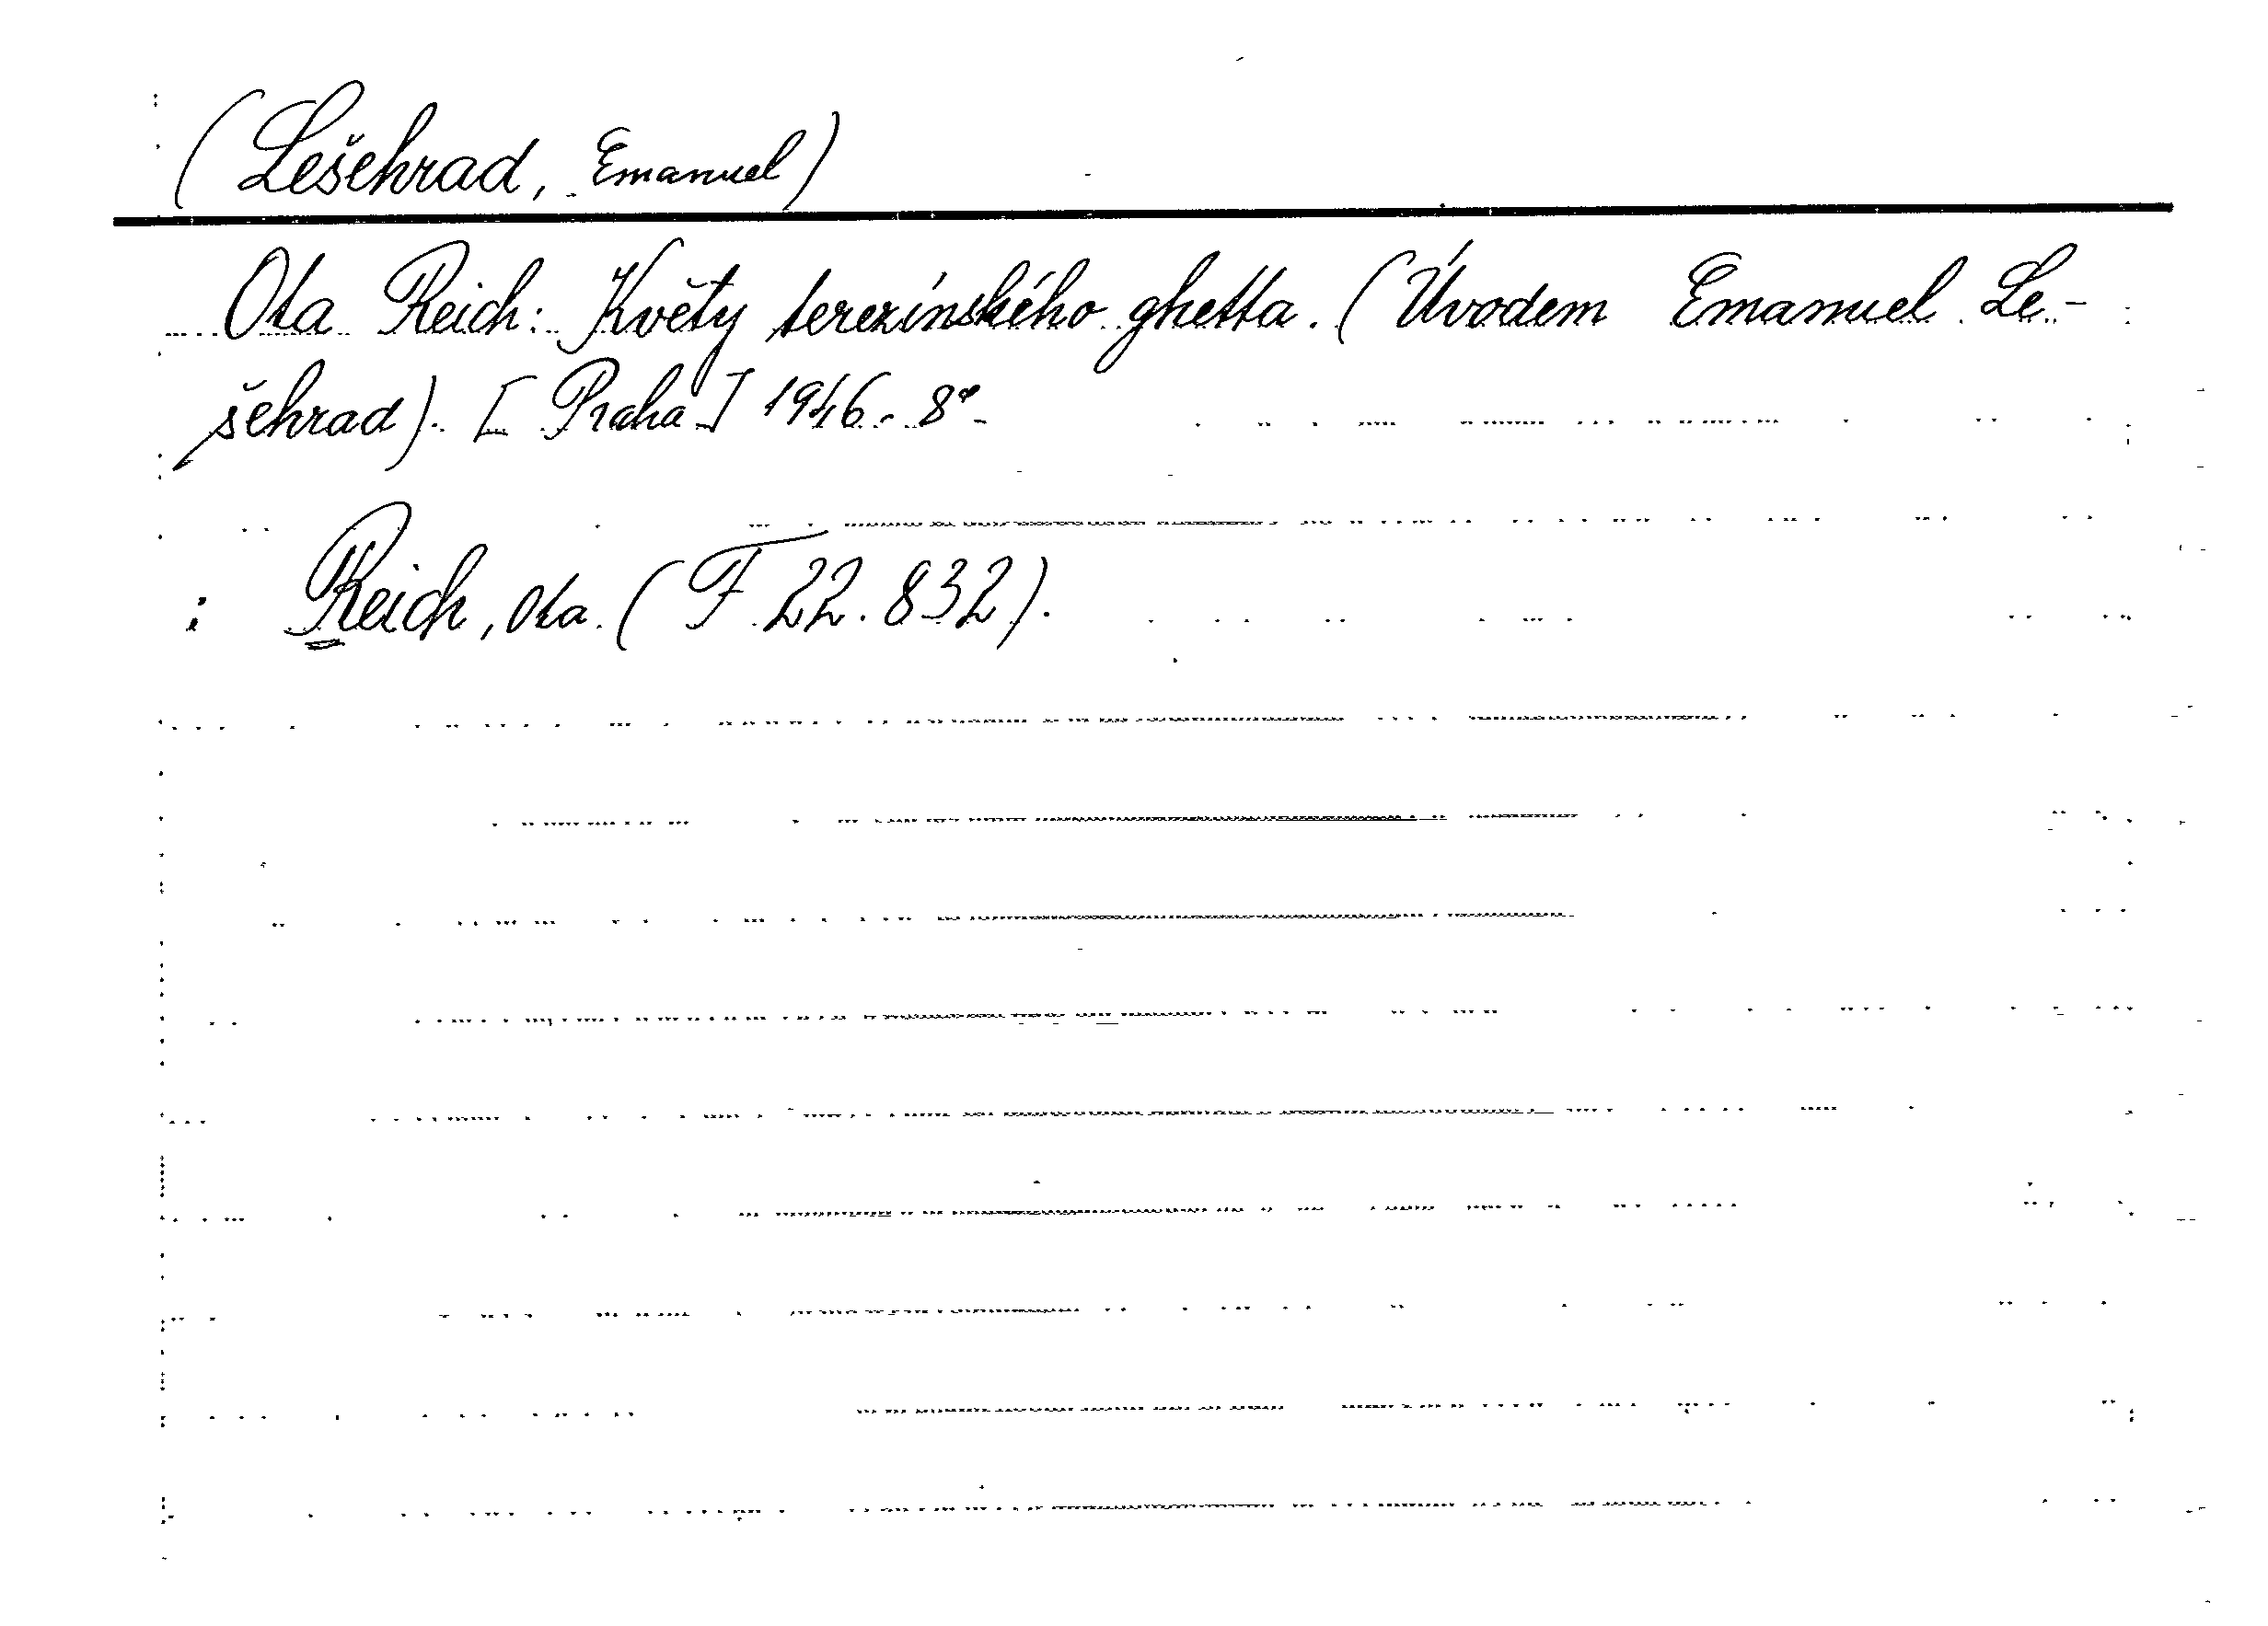 (Lešehrad, Emanuel)
Ota Reich: Květy terezínského ghetta. (Úvodem Emanuel Le-
šehrad). [Praha] 1946. 8°
: Reich, Ota. (F 22.832).